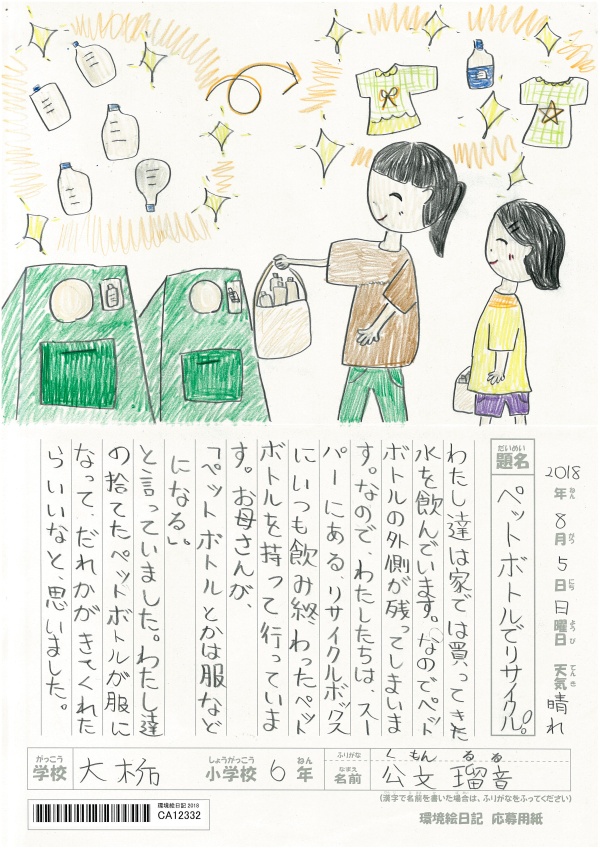 2018年8月5日日曜日 天気 晴れ
ねん がつ にち ようび てんき
だいめい
題名 ペットボトルでリサイクル!!。
わたし達は家では買ってきた
水を飲んでいます。なのでペット
ボトルの外側が残ってしまいま
す。なので、わたしたちは、スー
パーにある、リサイクルボックス
にいつも飲み終わったペット
ボトルを持って行っていま
す。お母さんが、
「ペットボトルとかは服など
になる。」
と言っていました。わたし達
の捨てたペットボトルが服に
なって、だれかがきてくれた
らいいなと、思いました。
がっこう しょうがっこう ねん
学校 大栃 小学校 6年
ふりがな くもん るる
なまえ
名前 公文 瑠音
(漢字で名前を書いた場合は、ふりがなをふってください)
環境絵日記 2018
CA12332
環境絵日記 応募用紙